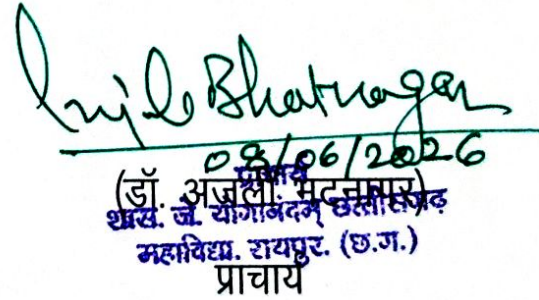 Anjali Bhatnagar
08/06/2026
प्राचार्य
(डॉ. अंजली भटनागर)
शास. जे. योगानंदम् छत्तीसगढ़
महाविद्या. रायपुर. (छ.ग.)
प्राचार्य